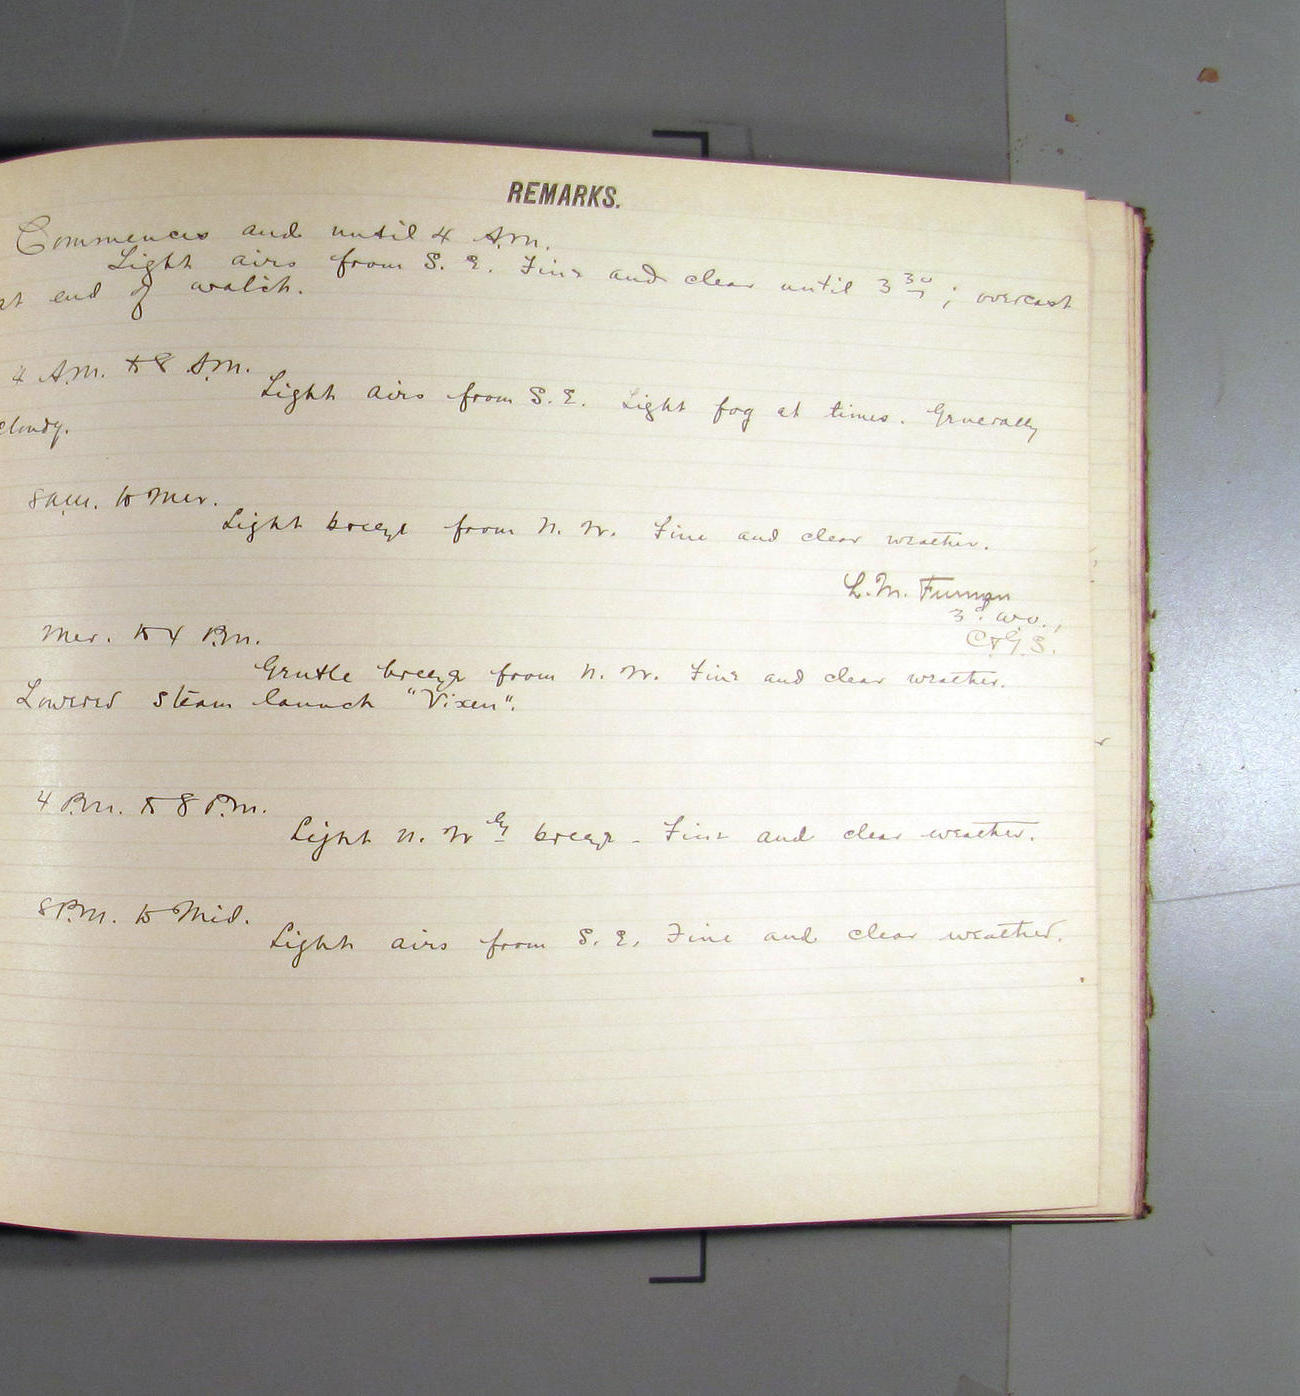 REMARKS.
Commences and until 4 A.M.
Light airs from S. E. Fine and clear until 3 30; overcast
at end of watch.
4 A.M. to 8 A.M.
Light airs from S. E. Light fog at times. Generally
cloudy.
8 A.M. to Mer.
Light breeze from N. W. Fine and clear weather.
L. M. Furman
3d. W.O.,
C&G.S.
Mer. to 4 P.M.
Gentle breeze from N. W. Fine and clear weather.
Lowered steam launch "Vixen".
4 P.M. to 8 P.M.
Light N. W ly breeze - Fine and clear weather.
8 P.M. to Mid.
Light airs from S. E. Fine and clear weather.